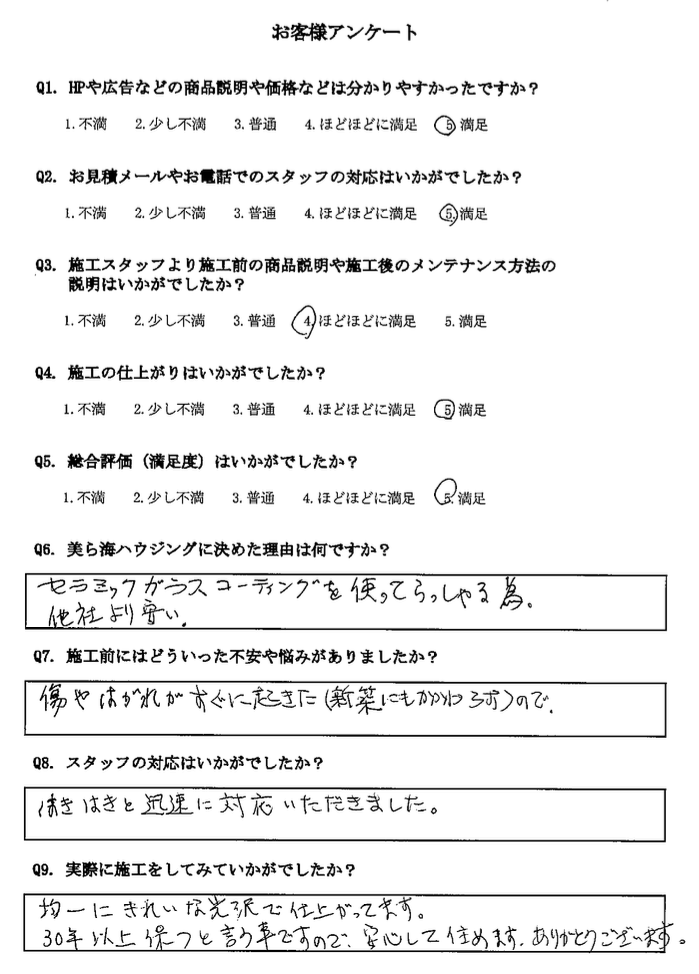 お客様アンケート
Q1. HPや広告などの商品説明や価格などは分かりやすかったですか？
1.不満 2.少し不満 3.普通 4.ほどほどに満足 5.満足
Q2. お見積メールやお電話でのスタッフの対応はいかがでしたか？
1.不満 2.少し不満 3.普通 4.ほどほどに満足 5.満足
Q3. 施工スタッフより施工前の商品説明や施工後のメンテナンス方法の
説明はいかがでしたか？
1.不満 2.少し不満 3.普通 4.ほどほどに満足 5.満足
Q4. 施工の仕上がりはいかがでしたか？
1.不満 2.少し不満 3.普通 4.ほどほどに満足 5.満足
Q5. 総合評価（満足度）はいかがでしたか？
1.不満 2.少し不満 3.普通 4.ほどほどに満足 5.満足
Q6. 美ら海ハウジングに決めた理由は何ですか？
セラミックガラスコーティングを使ってらっしゃる為。
他社より安い。
Q7. 施工前にはどういった不安や悩みがありましたか？
傷やはがれがすぐに起きた(新築にもかかわらず)ので。
Q8. スタッフの対応はいかがでしたか？
はきはきと迅速に対応いただきました。
Q9. 実際に施工をしてみていかがでしたか？
均一にきれいな光沢で仕上がってます。
30年以上保つと言う事ですので、安心して住めます。ありがとうございます。